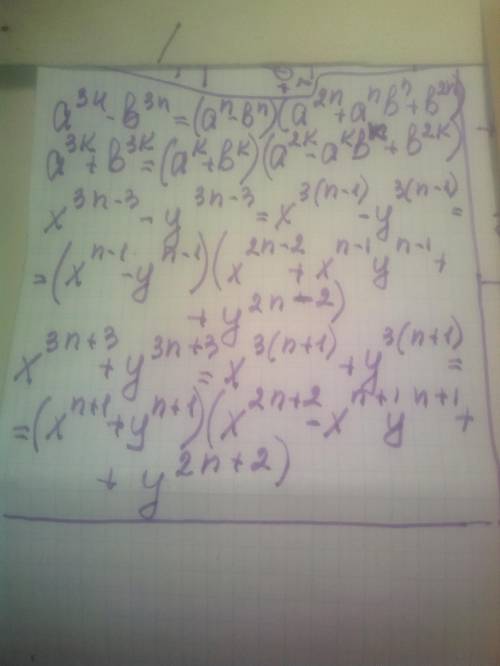 a^{3k} - b^{3n} = (a^n - b^n)(a^{2n} + a^n b^n + b^{2n})
a^{3k} + b^{3k} = (a^k + b^k)(a^{2k} - a^k b^k + b^{2k})
x^{3n-3} - y^{3n-3} = x^{3(n-1)} - y^{3(n-1)} =
= (x^{n-1} - y^{n-1})(x^{2n-2} + x^{n-1} y^{n-1} +
+ y^{2n-2})
x^{3n+3} + y^{3n+3} = x^{3(n+1)} + y^{3(n+1)} =
= (x^{n+1} + y^{n+1})(x^{2n+2} - x^{n+1} y^{n+1} +
+ y^{2n+2})